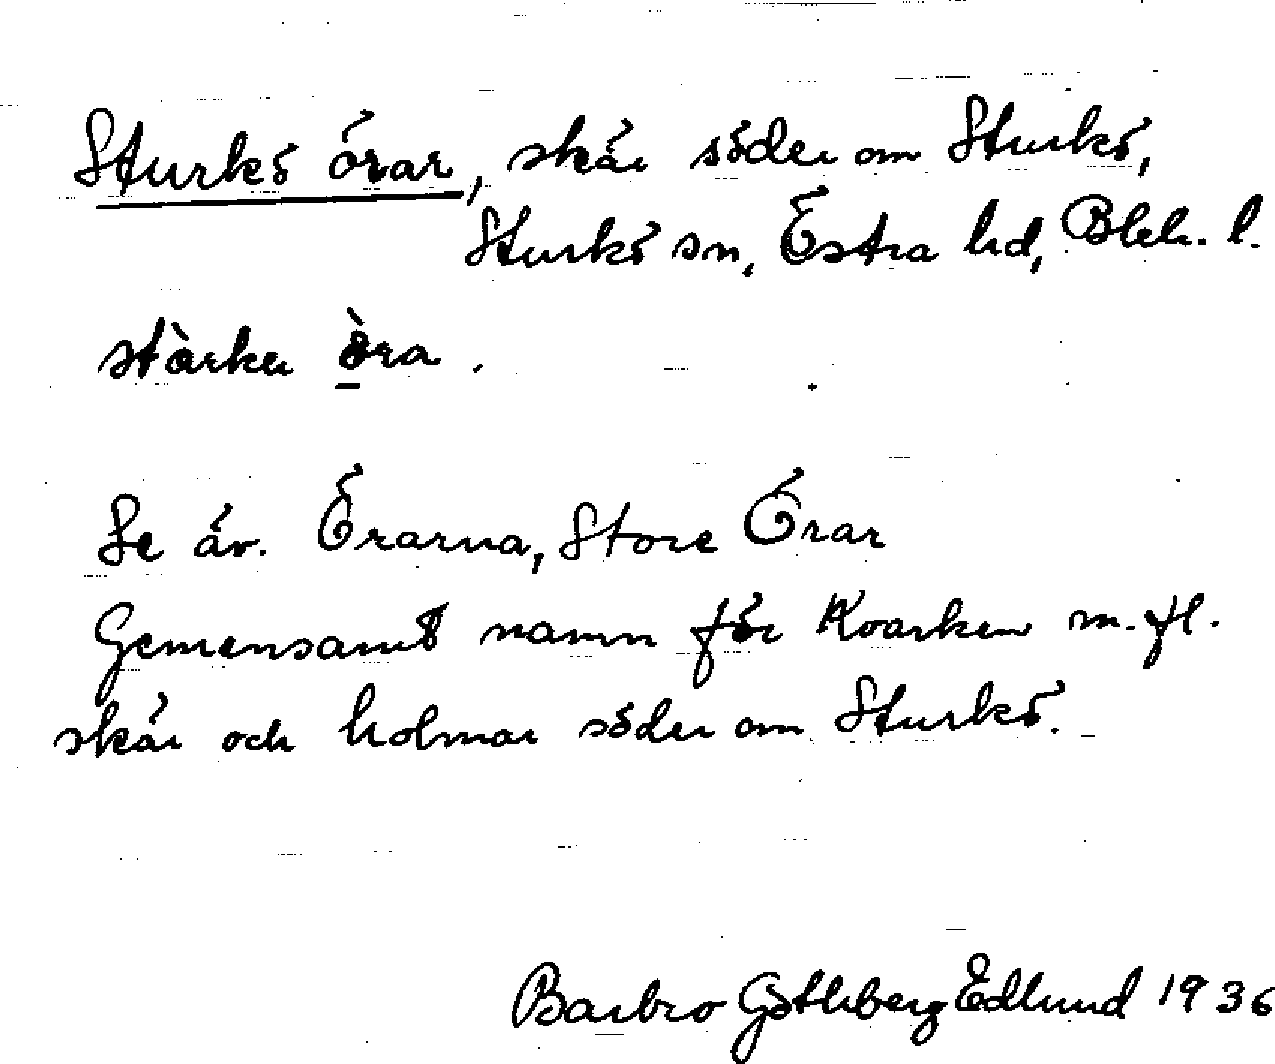 Sturkö örar, skär söder om Sturkö,
Sturkö sn, Östra hd, Blek. l.
stàrkər ö̀ra.
Se äv. Örarna, Store Örar
Gemensamt namn för Kvarken m.fl.
skär och holmar söder om Sturkö.
Barbro Göthberg Edlund 1936